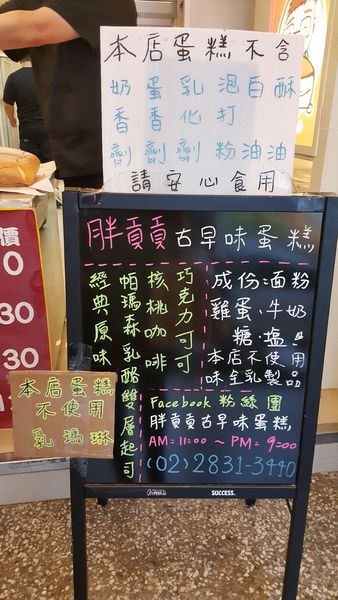 本店蛋糕不含
奶香劑
蛋香劑
乳化劑
泡打粉
白油
酥油
請安心食用
胖貢貢古早味蛋糕
巧克力可可
核桃咖啡
帕瑪森乳酪雙層起司
經典原味
成份:面粉
雞蛋、牛奶
糖、鹽。
本店不使用
味全乳製品
Facebook 粉絲團
胖貢貢古早味蛋糕,
AM=11=00 ~ PM=9=00
(02) 2831-3440
本店蛋糕
不使用
乳瑪琳
SUCCESS.
價
0
30
30